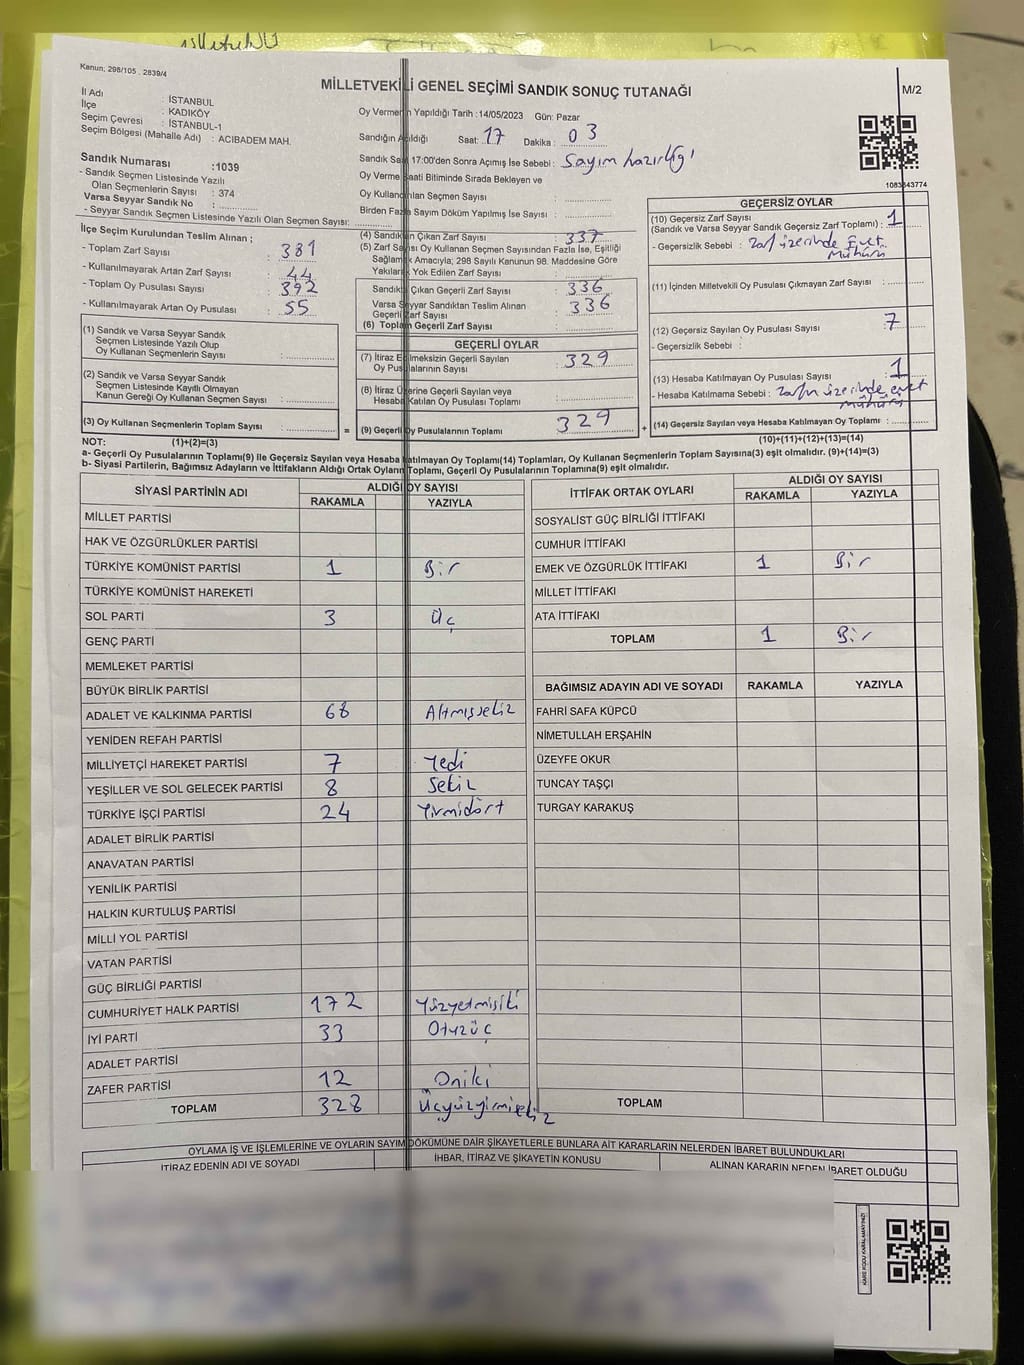 Kanun; 298/105 , 2839/4
MİLLETVEKİLİ GENEL SEÇİMİ SANDIK SONUÇ TUTANAĞI
M/2
İl Adı : İSTANBUL
İlçe : KADIKÖY
Seçim Çevresi : İSTANBUL-1
Seçim Bölgesi (Mahalle Adı) : ACIBADEM MAH.
Oy Vermenin Yapıldığı Tarih :14/05/2023 Gün: Pazar
Sandığın Açıldığı Saat: 17 Dakika: 03
Sandık Saat 17:00'den Sonra Açımış İse Sebebi : Sayım hazırlığı
Oy Verme Saati Bitiminde Sırada Bekleyen ve
Oy Kullandırılan Seçmen Sayısı :
Birden Fazla Sayım Döküm Yapılmış İse Sayısı :
1083343774
Sandık Numarası :1039
- Sandık Seçmen Listesinde Yazılı
Olan Seçmenlerin Sayısı : 374
Varsa Seyyar Sandık No :
- Seyyar Sandık Seçmen Listesinde Yazılı Olan Seçmen Sayısı:
İlçe Seçim Kurulundan Teslim Alınan ;
- Toplam Zarf Sayısı : 381
- Kullanılmayarak Artan Zarf Sayısı : 44
- Toplam Oy Pusulası Sayısı : 392
- Kullanılmayarak Artan Oy Pusulası : 55
(1) Sandık ve Varsa Seyyar Sandık
Seçmen Listesinde Yazılı Olup
Oy Kullanan Seçmenlerin Sayısı :
(2) Sandık ve Varsa Seyyar Sandık
Seçmen Listesinde Kayıtlı Olmayan
Kanun Gereği Oy Kullanan Seçmen Sayısı :
(3) Oy Kullanan Seçmenlerin Toplam Sayısı :
(4) Sandıktan Çıkan Zarf Sayısı : 337
(5) Zarf Sayısı Oy Kullanan Seçmen Sayısından Fazla İse, Eşitliği
Sağlamak Amacıyla; 298 Sayılı Kanunun 98. Maddesine Göre
Yakılarak Yok Edilen Zarf Sayısı :
Sandıktan Çıkan Geçerli Zarf Sayısı : 336
Varsa Seyyar Sandıktan Teslim Alınan
Geçerli Zarf Sayısı : 336
(6) Toplam Geçerli Zarf Sayısı :
GEÇERLİ OYLAR
(7) İtiraz Edilmeksizin Geçerli Sayılan
Oy Pusulalarının Sayısı : 329
(8) İtiraz Üzerine Geçerli Sayılan veya
Hesaba Katılan Oy Pusulası Toplamı :
= (9) Geçerli Oy Pusulalarının Toplamı : 329 +
GEÇERSİZ OYLAR
(10) Geçersiz Zarf Sayısı
(Sandık ve Varsa Seyyar Sandık Geçersiz Zarf Toplamı) : 1
- Geçersizlik Sebebi : Zarf üzerinde Evet
Mührü
(11) İçinden Milletvekili Oy Pusulası Çıkmayan Zarf Sayısı :
(12) Geçersiz Sayılan Oy Pusulası Sayısı : 7
- Geçersizlik Sebebi :
(13) Hesaba Katılmayan Oy Pusulası Sayısı : 1
- Hesaba Katılmama Sebebi : Zarfın üzerinde evet
mührü
(14) Geçersiz Sayılan veya Hesaba Katılmayan Oy Pusulası Toplamı :
NOT: (1)+(2)=(3) (10)+(11)+(12)+(13)=(14)
a- Geçerli Oy Pusulalarının Toplamı(9) İle Geçersiz Sayılan veya Hesaba Katılmayan Oy Toplamı(14) Toplamları, Oy Kullanan Seçmenlerin Toplam Sayısına(3) eşit olmalıdır. (9)+(14)=(3)
b- Siyasi Partilerin, Bağımsız Adayların ve İttifakların Aldığı Ortak Oyların Toplamı, Geçerli Oy Pusulalarının Toplamına(9) eşit olmalıdır.
SİYASİ PARTİNİN ADI ALDIĞI OY SAYISI
RAKAMLA YAZIYLA
MİLLET PARTİSİ
HAK VE ÖZGÜRLÜKLER PARTİSİ
TÜRKİYE KOMÜNİST PARTİSİ 1 Bir
TÜRKİYE KOMÜNİST HAREKETİ
SOL PARTİ 3 Üç
GENÇ PARTİ
MEMLEKET PARTİSİ
BÜYÜK BİRLİK PARTİSİ
ADALET VE KALKINMA PARTİSİ 68 Altmışsekiz
YENİDEN REFAH PARTİSİ
MİLLİYETÇİ HAREKET PARTİSİ 7 Yedi
YEŞİLLER VE SOL GELECEK PARTİSİ 8 Sekiz
TÜRKİYE İŞÇİ PARTİSİ 24 Yirmidört
ADALET BİRLİK PARTİSİ
ANAVATAN PARTİSİ
YENİLİK PARTİSİ
HALKIN KURTULUŞ PARTİSİ
MİLLİ YOL PARTİSİ
VATAN PARTİSİ
GÜÇ BİRLİĞİ PARTİSİ
CUMHURİYET HALK PARTİSİ 172 Yüzyetmişiki
İYİ PARTİ 33 Otuzüç
ADALET PARTİSİ
ZAFER PARTİSİ 12 Oniki
TOPLAM 328 Üçyüzyirmisekiz
İTTİFAK ORTAK OYLARI ALDIĞI OY SAYISI
RAKAMLA YAZIYLA
SOSYALİST GÜÇ BİRLİĞİ İTTİFAKI
CUMHUR İTTİFAKI
EMEK VE ÖZGÜRLÜK İTTİFAKI 1 Bir
MİLLET İTTİFAKI
ATA İTTİFAKI
TOPLAM 1 Bir
BAĞIMSIZ ADAYIN ADI VE SOYADI RAKAMLA YAZIYLA
FAHRİ SAFA KÜPCÜ
NİMETULLAH ERŞAHİN
ÜZEYFE OKUR
TUNCAY TAŞÇI
TURGAY KARAKUŞ
TOPLAM
OYLAMA İŞ VE İŞLEMLERİNE VE OYLARIN SAYIM DÖKÜMÜNE DAİR ŞİKAYETLERLE BUNLARA AİT KARARLARIN NELERDEN İBARET BULUNDUKLARI
İTİRAZ EDENİN ADI VE SOYADI İHBAR, İTİRAZ VE ŞİKAYETİN KONUSU ALINAN KARARIN NEDEN İBARET OLDUĞU
KARE KODU KARALAMAYINIZ!